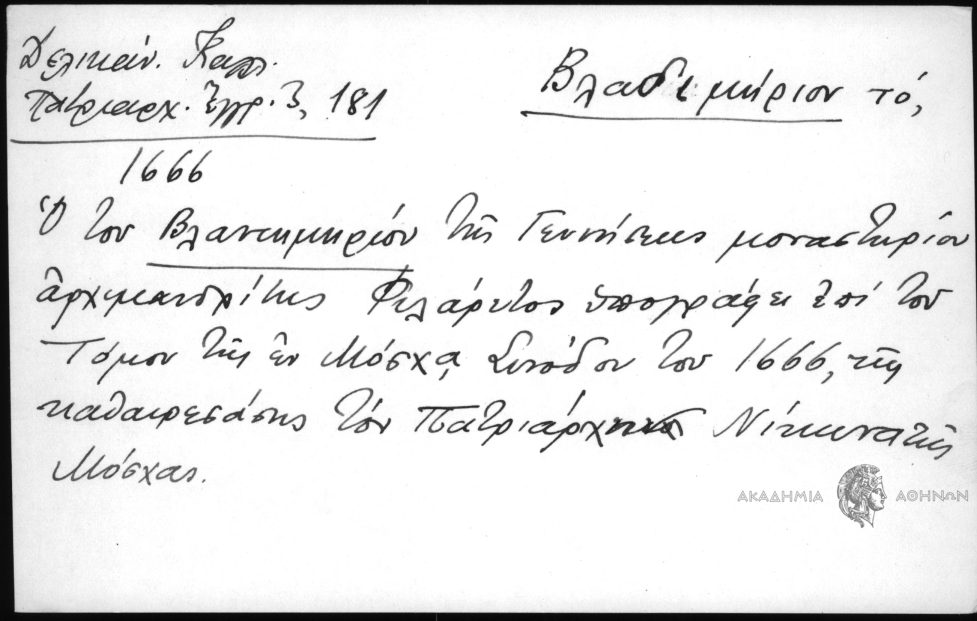 Δελικάν. Καλλ.
Πατριαρχ. Ἔγγρ. 3, 181
Βλαδιμήριον τό,
1666
Ὁ τοῦ Βλαντιμηρίου τῆς Γεννήσεως μοναστηρίου
ἀρχιμανδρίτης Φιλάρετος ὑπογράφει ἐπί τοῦ
Τόμου τῆς ἐν Μόσχᾳ Συνόδου τοῦ 1666, τῆς
καθαιρεσάσης τόν Πατριάρχην Νίκωνα τῆς
Μόσχας.
ΑΚΑΔΗΜΙΑ ΑΘΗΝΩΝ